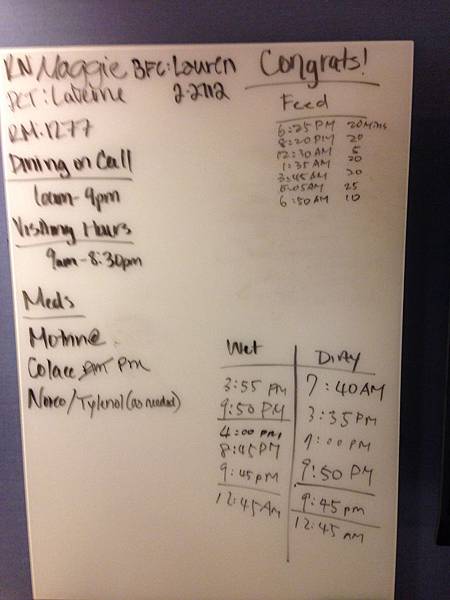 RN Maggie BFC: Lauren
PCT: Laterne 2-2712
RM: 1277
Congrats!
Feed
6:25 PM 20 Mins
8:20 PM 20
12:30 AM 5
1:35 AM 20
3:45 AM 20
5:05 AM 25
6:50 AM 10
Dining on Call
10am-9pm
Visiting Hours
9am-8:30pm
Meds
Motrin@
Colace PM
Norco/Tylenol (as needed)
Wet
3:55 PM
9:50 PM
4:00 PM
8:45 PM
9:45 PM
12:45 AM
Dirty
7:40 AM
3:35 PM
7:00 PM
9:50 PM
9:45 PM
12:45 AM